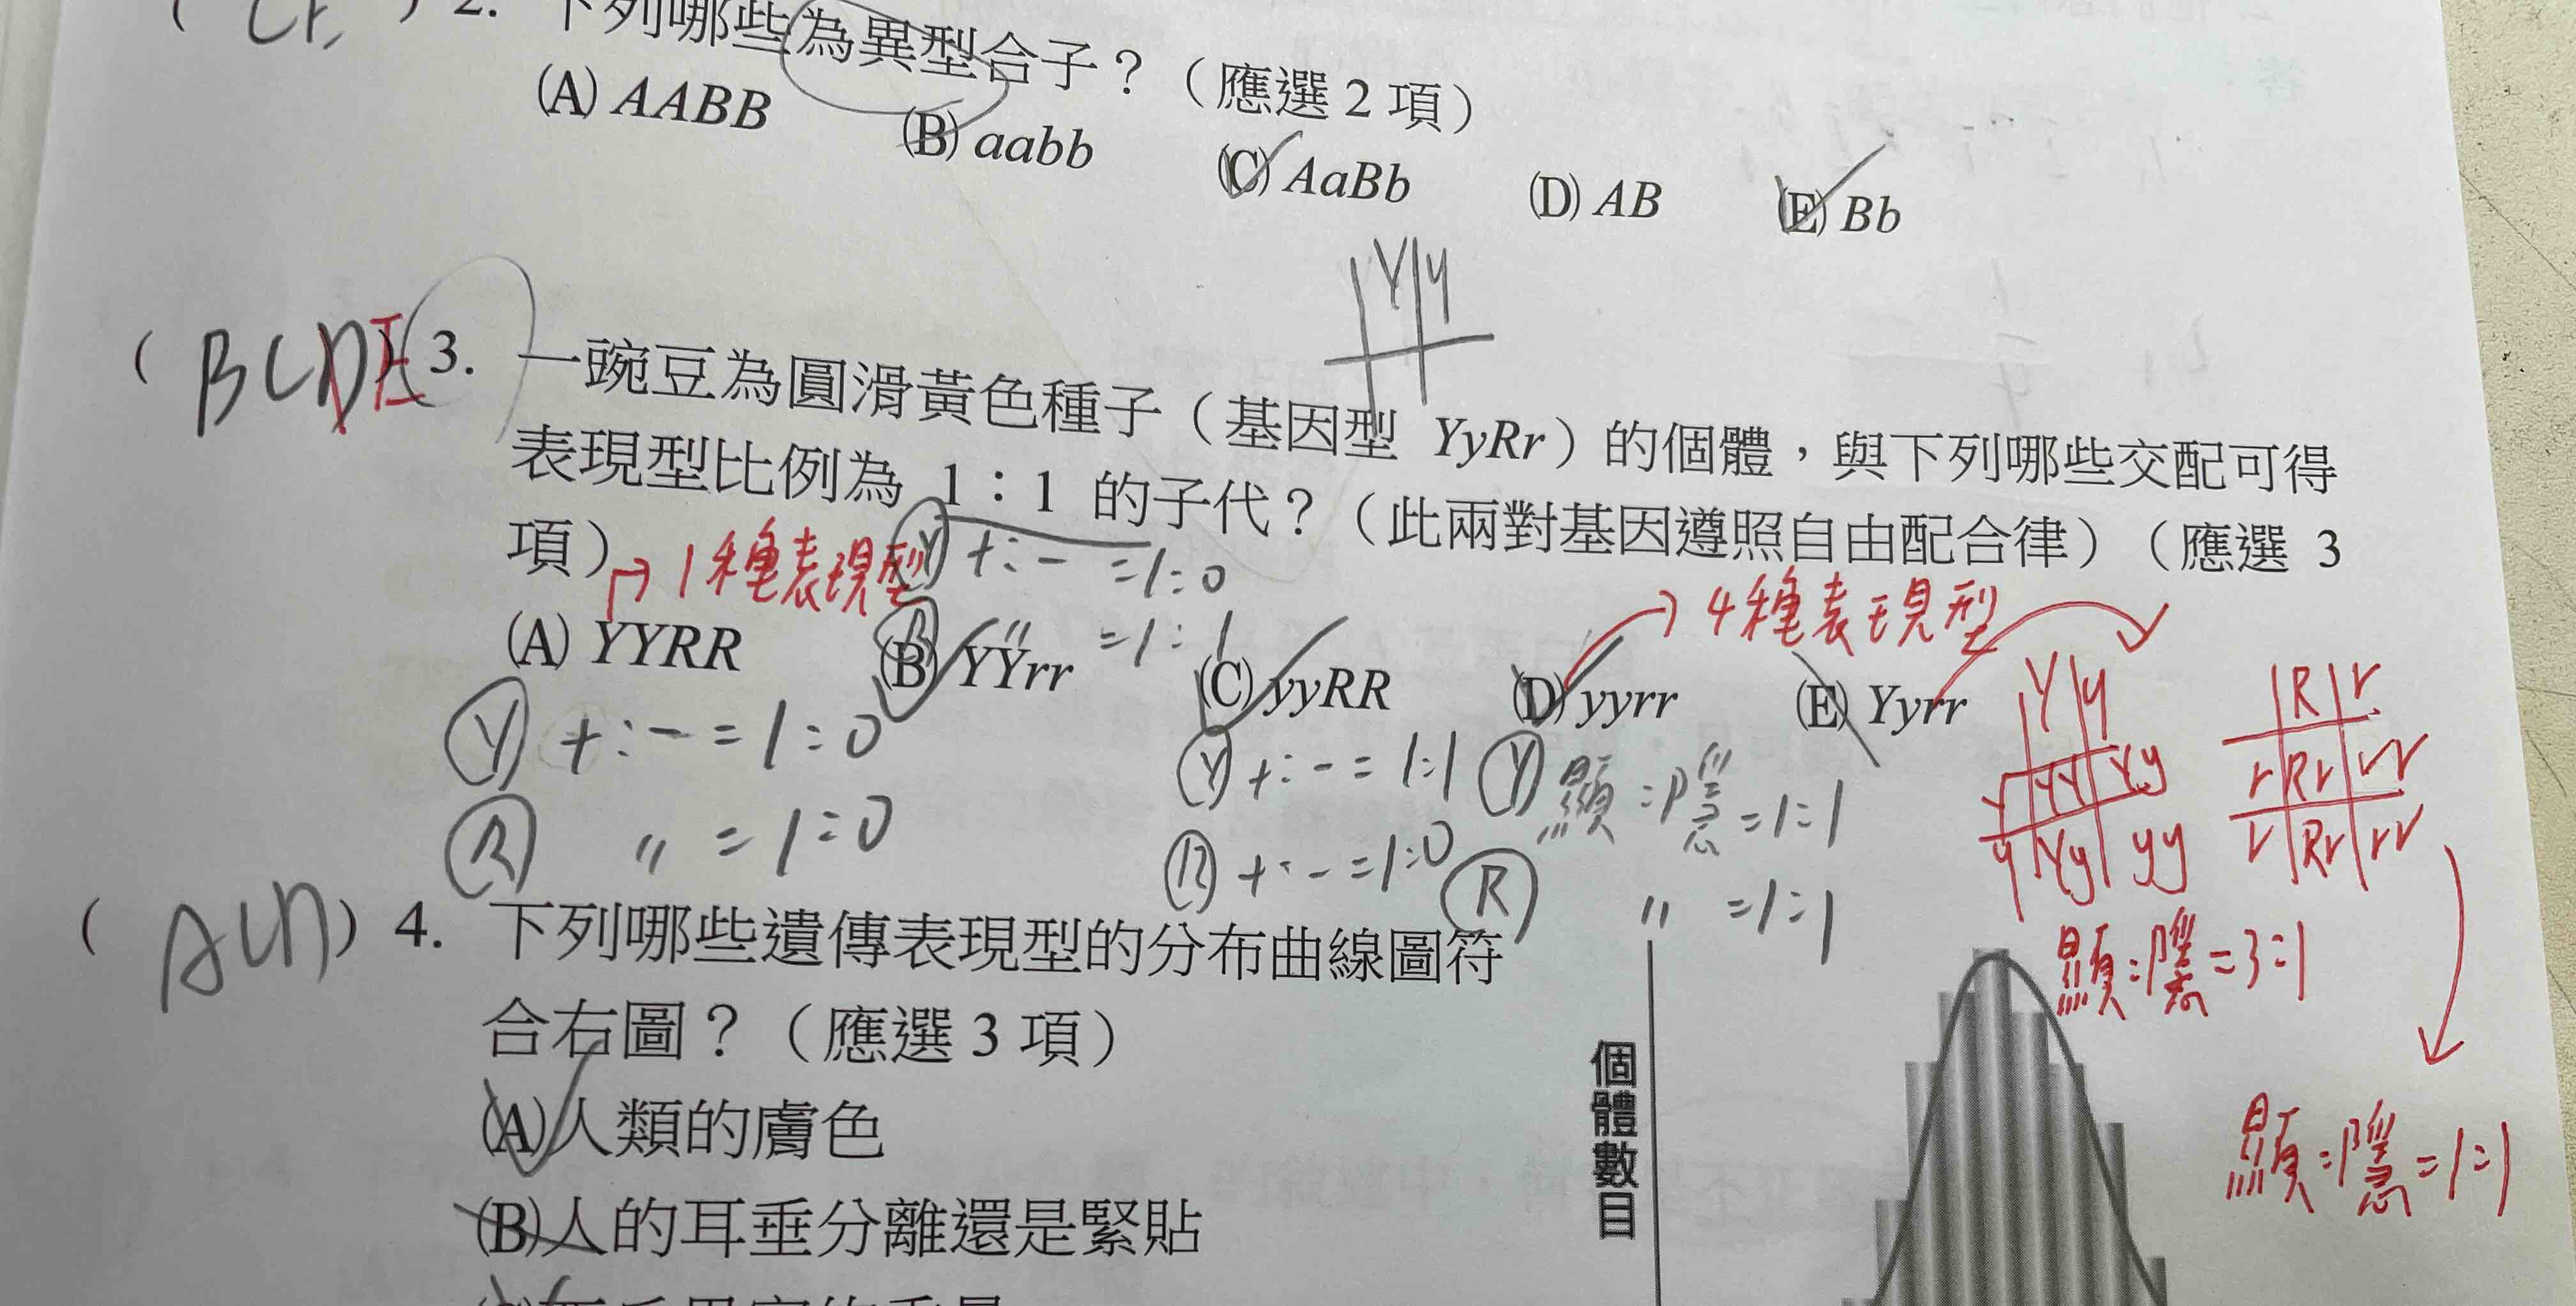 2. 下列哪些為異型合子？（應選 2 項）
(A) AABB (B) aabb (C) AaBb (D) AB (E) Bb
Y y
( BCD E ) 3. 一豌豆為圓滑黃色種子（基因型 YyRr）的個體，與下列哪些交配可得
表現型比例為 1：1 的子代？（此兩對基因遵照自由配合律）（應選 3
項）
→ 1種表現型
Y +：- = 1：0
R 〃 = 1：1
→ 4種表現型
(A) YYRR (B) YYrr (C) yyRR (D) yyrr (E) Yyrr
Y +：- = 1：0
R 〃 = 1：0
Y +：- = 1：1
R +：- = 1：0
Y 顯：隱 = 1：1
R 〃 = 1：1
Y y
Y YY Yy
y Yy yy
顯：隱 = 3：1
R r
r Rr rr
r Rr rr
顯：隱 = 1：1
( ACD ) 4. 下列哪些遺傳表現型的分布曲線圖符
合右圖？（應選 3 項）
(A) 人類的膚色
(B) 人的耳垂分離還是緊貼
個體數目